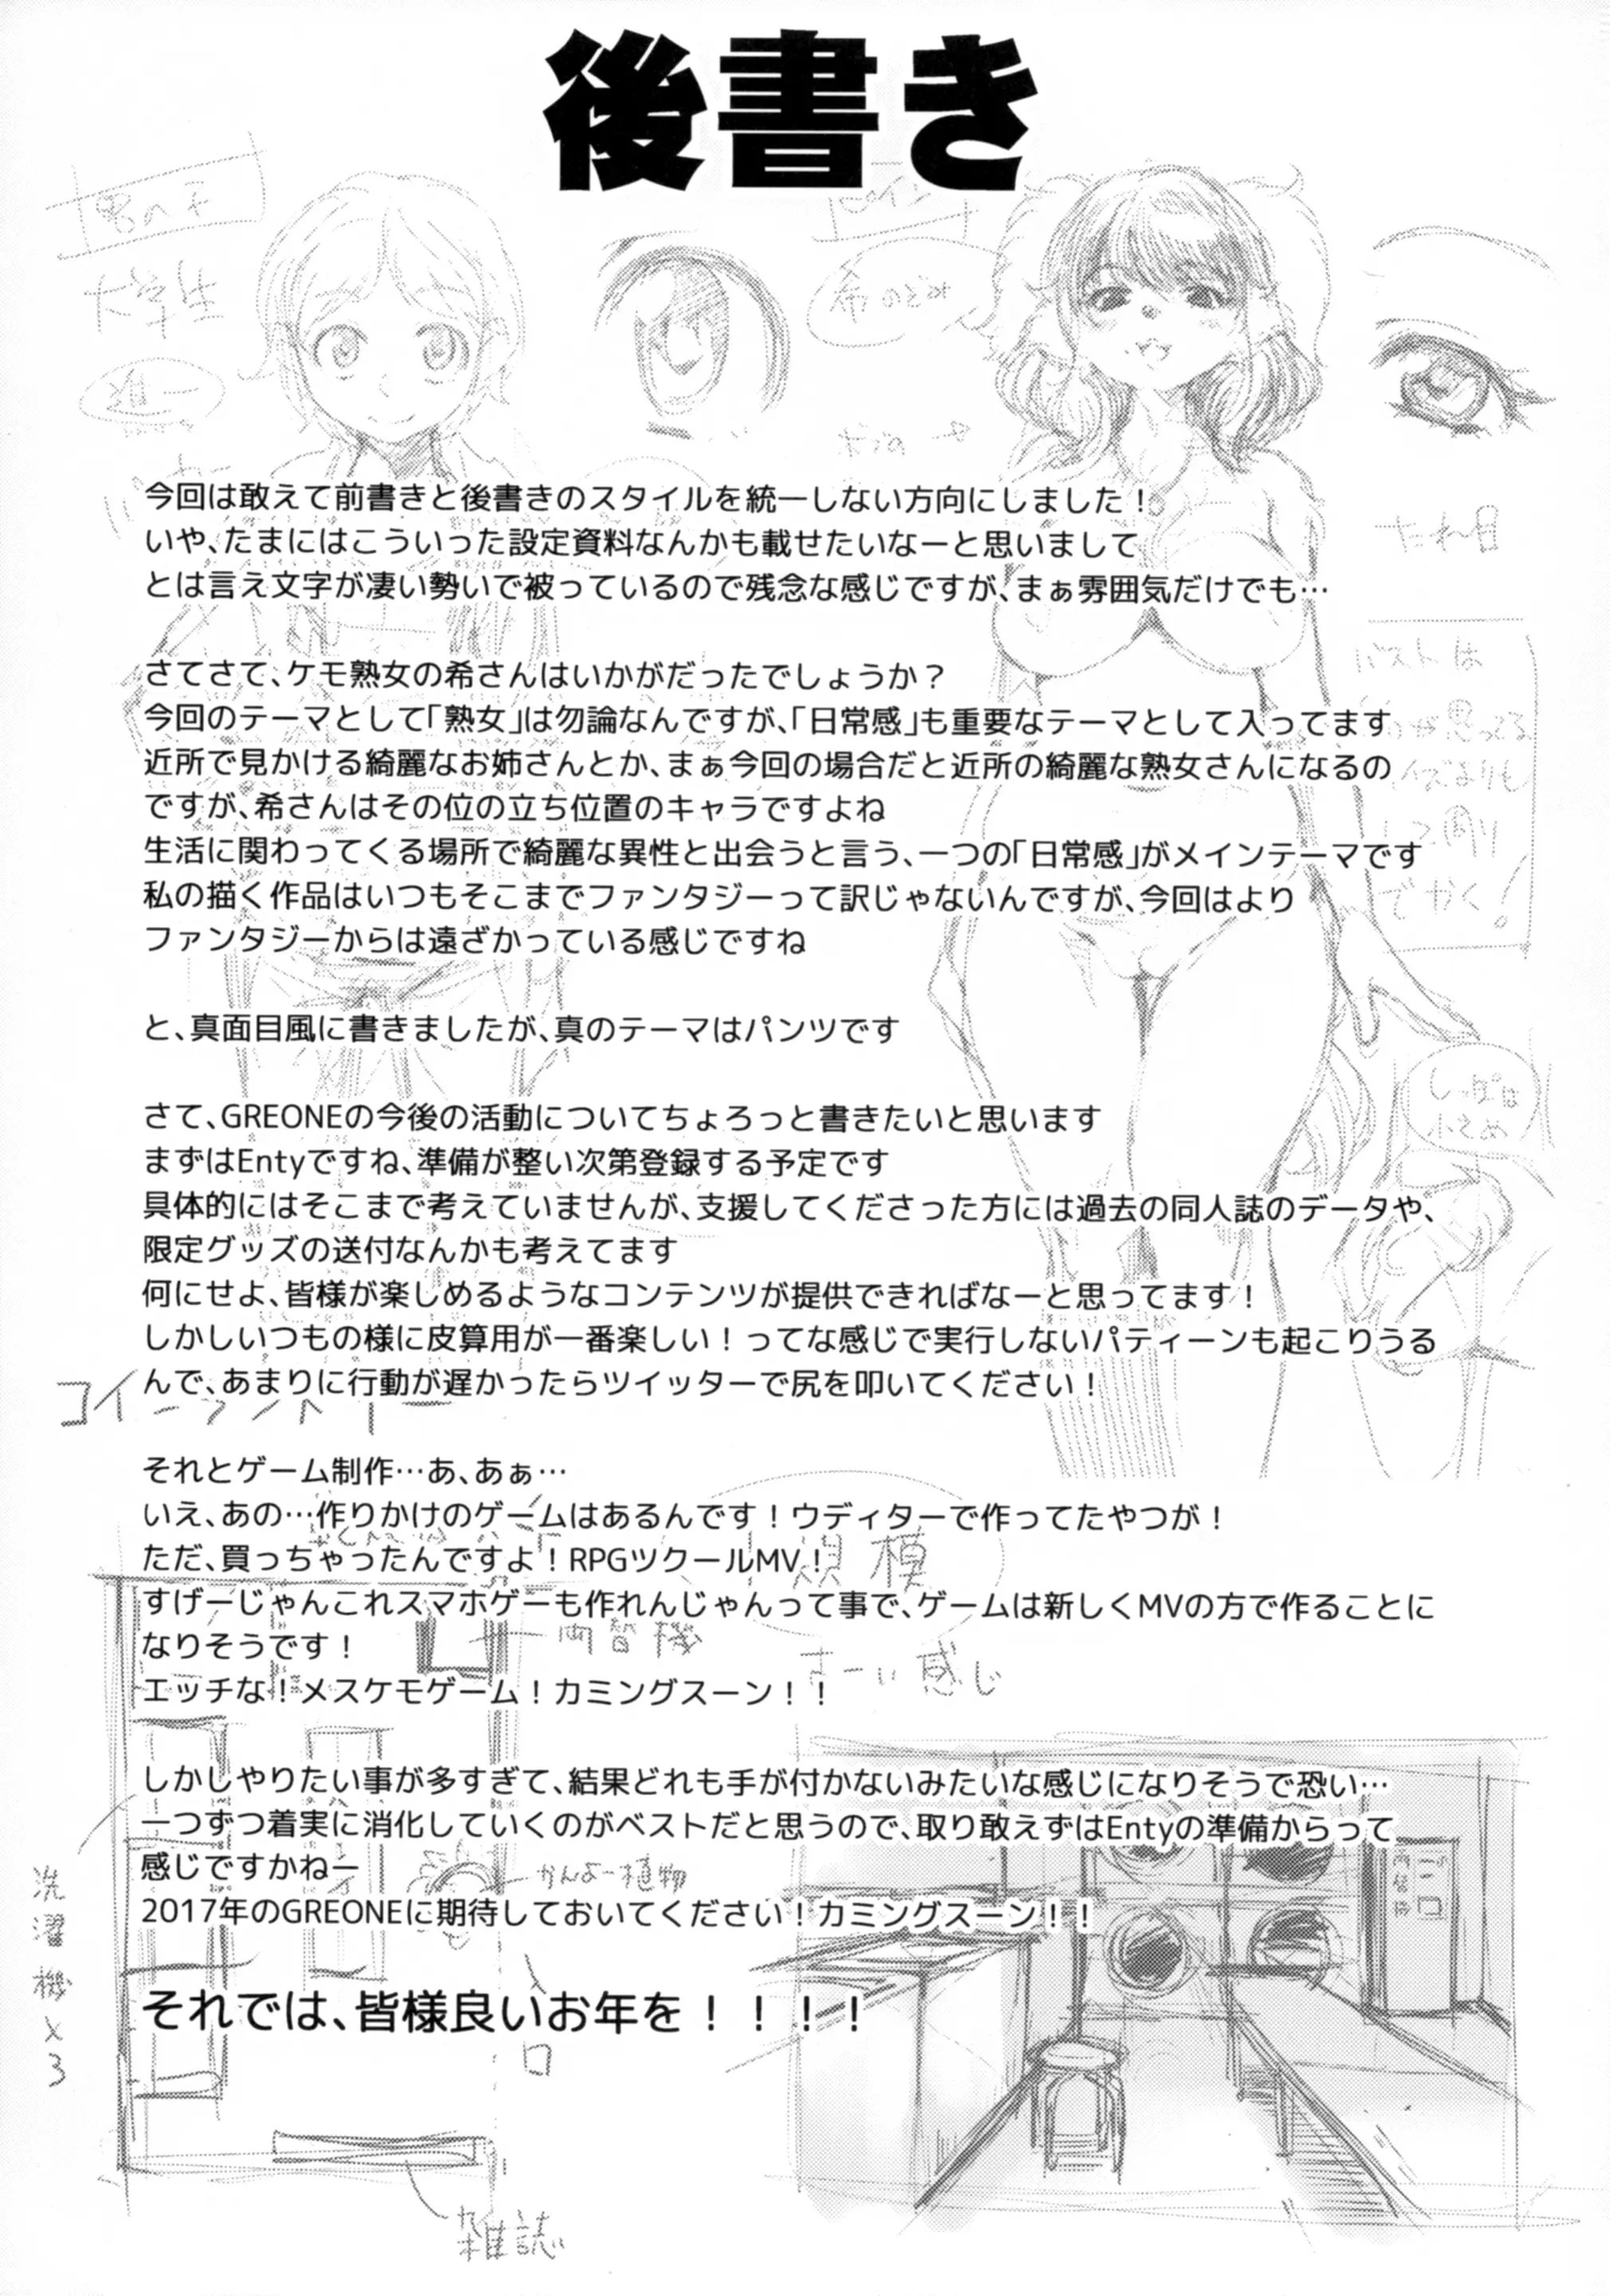 後書き
男の子
大学生
ヒロイン
希 のぞみ
たれ目
今回は敢えて前書きと後書きのスタイルを統一しない方向にしました！
いや、たまにはこういった設定資料なんかも載せたいなーと思いまして
とは言え文字が凄い勢いで被っているので残念な感じですが、まぁ雰囲気だけでも…
さてさて、ケモ熟女の希さんはいかがだったでしょうか？
今回のテーマとして「熟女」は勿論なんですが、「日常感」も重要なテーマとして入ってます
近所で見かける綺麗なお姉さんとか、まぁ今回の場合だと近所の綺麗な熟女さんになるの
ですが、希さんはその位の立ち位置のキャラですよね
生活に関わってくる場所で綺麗な異性と出会うと言う、一つの「日常感」がメインテーマです
私の描く作品はいつもそこまでファンタジーって訳じゃないんですが、今回はより
ファンタジーからは遠ざかっている感じですね
バストは
思ってる
でかく！
と、真面目風に書きましたが、真のテーマはパンツです
しっぽは
小さめ
さて、GREONEの今後の活動についてちょろっと書きたいと思います
まずはEntyですね、準備が整い次第登録する予定です
具体的にはそこまで考えていませんが、支援してくださった方には過去の同人誌のデータや、
限定グッズの送付なんかも考えてます
何にせよ、皆様が楽しめるようなコンテンツが提供できればなーと思ってます！
しかしいつもの様に皮算用が一番楽しい！ってな感じで実行しないパティーンも起こりうる
んで、あまりに行動が遅かったらツイッターで尻を叩いてください！
コインランドリー
それとゲーム制作…あ、あぁ…
いえ、あの…作りかけのゲームはあるんです！ウディターで作ってたやつが！
ただ、買っちゃったんですよ！RPGツクールMV！
すげーじゃんこれスマホゲーも作れんじゃんって事で、ゲームは新しくMVの方で作ることに
なりそうです！
エッチな！メスケモゲーム！カミングスーン！！
規模
両替機
感じ
しかしやりたい事が多すぎて、結果どれも手が付かないみたいな感じになりそうで恐い…
一つずつ着実に消化していくのがベストだと思うので、取り敢えずはEntyの準備からって
感じですかねー
2017年のGREONEに期待しておいてください！カミングスーン！！
かんよー植物
洗濯機×3
入口
それでは、皆様良いお年を！！！！
雑誌